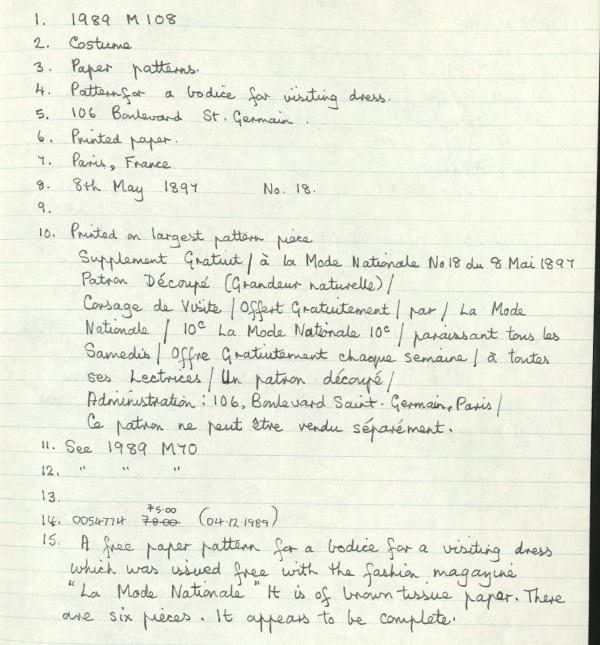 1. 1989 M 108
2. Costume
3. Paper patterns.
4. Pattern for a bodice for visiting dress.
5. 106 Boulevard St. Germain.
6. Printed paper.
7. Paris, France
8. 8th May 1897 No. 18.
9.
10. Printed on largest pattern piece
Supplement Gratuit / à la Mode Nationale No 18 du 8 Mai 1897
Patron Découpé (Grandeur naturelle) /
Corsage de Visite / Offert Gratuitement / par / La Mode
Nationale / 10c La Mode Nationale 10c / paraissant tous les
Samedis / Offre Gratuitement chaque semaine / à toutes
ses Lectrices / Un patron découpé /
Administration: 106, Boulevard Saint-Germain, Paris /
Ce patron ne peut être vendu séparément.
11. See 1989 M70
12. " " "
13.
75.00
14. 0054774 70.00 (04.12.1989)
15. A free paper pattern for a bodice for a visiting dress
which was issued free with the fashion magazine
"La Mode Nationale" It is of brown tissue paper. There
are six pieces. It appears to be complete.